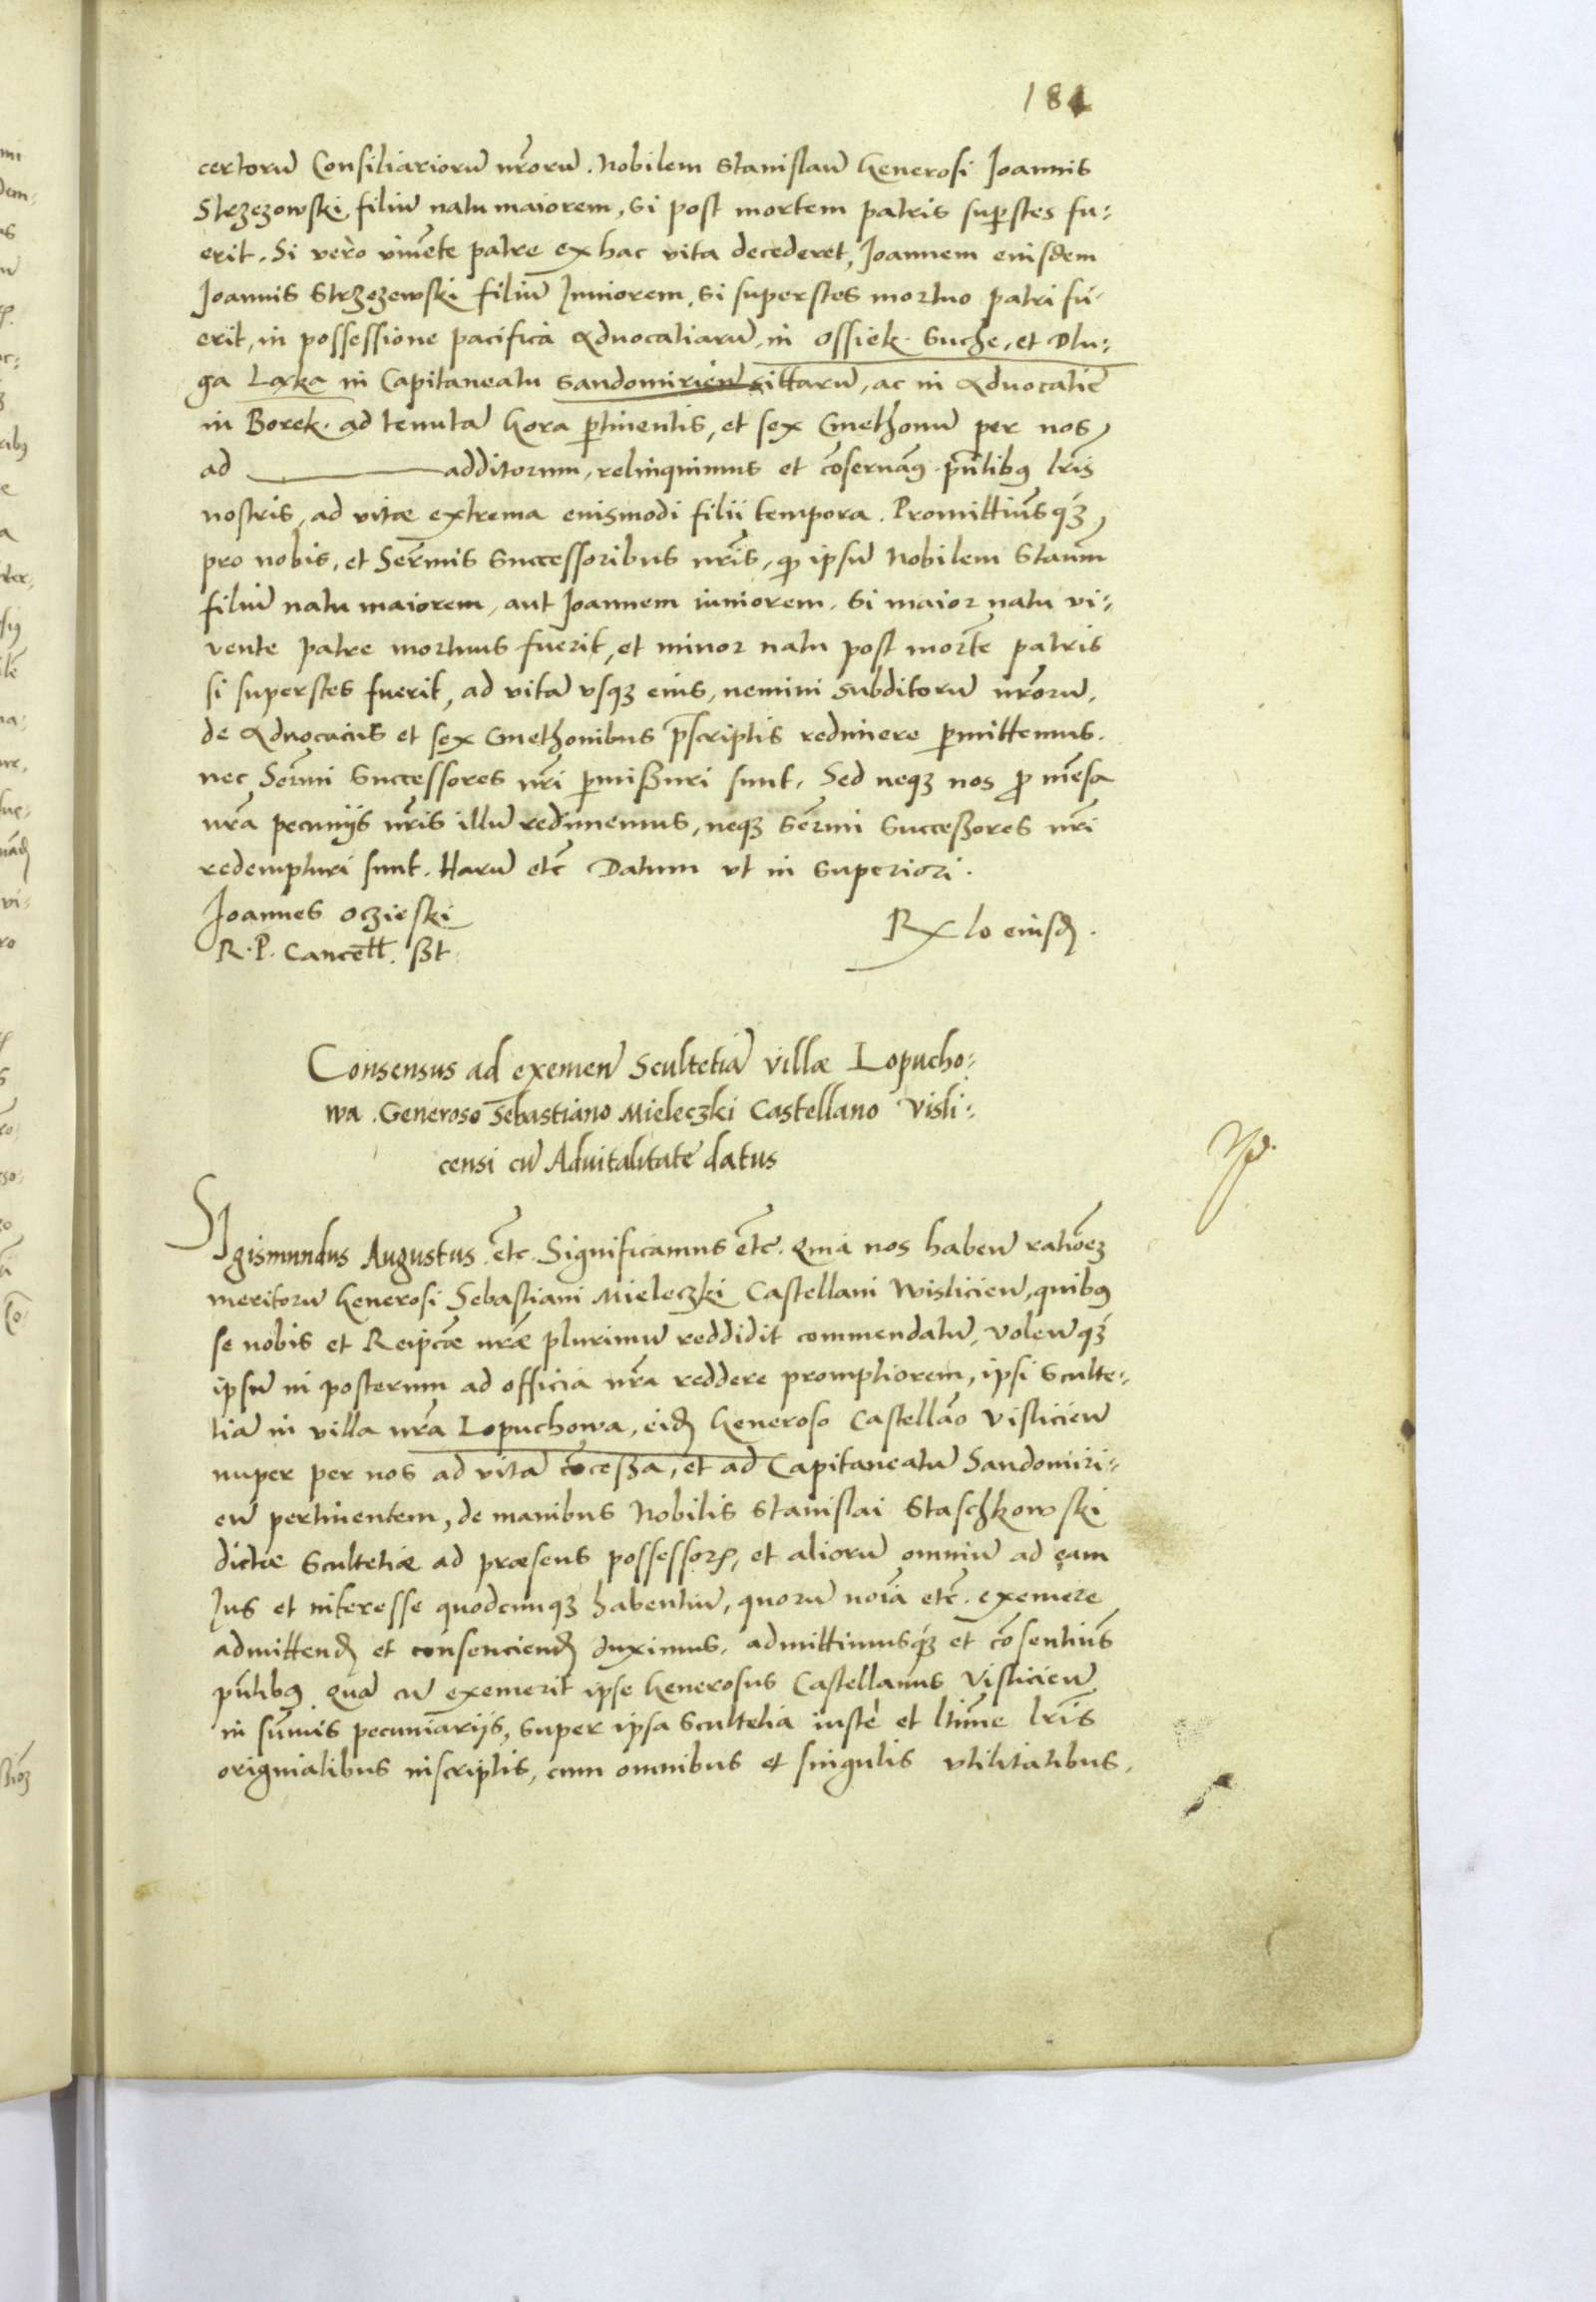 184
certorũ Consiliariorũ nr̃orũ. Nobilem Stanislaũ Generosi Ioannis
Strzezowski, filiũ natu maiorem, si post mortem patris sup̃stes fu:
erit. Si verò viuẽte patre ex hac vita decederet, Ioannem eiusdem
Ioannis Strzezewski filiũ Iuniorem, si superstes mortuo patri fu-
erit, in possessione pacifica Aduocatiarũ, in Ossiek. Suche, et Dlu:
ga Laxka in Capitaneatu Sandomirien̄ sittarũ, ac in Aduocatiẽ
in Borek. ad tenutã Gora p̃tinentis, et sex Cmethonũ per nos,
ad additorum, relinquimus et cõseruãꝰ p̃ñtibꝰ lr̃is
nostris, ad vitæ extrema eiusmodi filii tempora. Promittiũsqꝫ,
pro nobis, et Serm̃is Successoribus nr̃is, qꝫ ipsũ Nobilem Staũm
filiũ natu maiorem, aut Ioannem iuniorem. Si maior natu vi:
vente patre mortuus fuerit, et minor natu post mortẽ patris
si superstes fuerit, ad vitã vsqꝫ eius, nemini subditorũ nr̃orũ.
de Aduocaciis et sex Cmethonibus p̃scriptis redimere p̃mittemus.
nec Serm̃i Successores nr̃i p̃missuri sunt. Sed neqꝫ nos p̃ mẽsa
nr̃a pecunijs nr̃is illũ redimemus, neqꝫ Serm̃i Successores nr̃i
redempturi sunt. Harũ etc̃ Datum vt in Superiori.
Ioannes Oczieski
R. P. Cancell. sst
Rx lo eiusd̃.
Consensus ad exemen̄ Scultetiã villæ Lopucho:
wa. Generoso Sebastiano Mieleczki Castellano Visli:
censi cũ Aduitalitate datus
SIgismundus Augustus. etc̃. Significamus etc̃. Quia nos haben̄ ratioẽꝫ
meritorũ Generosi Sebastiani Mieleczki Castellani Wislicien̄, quibꝰ
se nobis et Reipcæ nr̃æ plurimũ reddidit commendatũ, volen̄qꝫ
ipsũ in posterum ad officia nr̃a reddere promptiorem, ipsi Sculte:
tiã in villa nr̃a Lopuchowa, eid̃ Generoso Castellão Vislicien̄
nuper per nos ad vitã cõcessã, et ad Capitaneatũ Sandomiri:
en̄ pertinentem, de manibus Nobilis Stanislai Staschkowski
dictæ Scultetiæ ad præsens possessor̃, et aliorũ omniũ ad eam
Ius et interesse quodcunqꝫ habentiũ, quorũ noĩa etc̃. exemere
admittend̃ et consenciend̃ duximus. admittimusqꝫ et cõsentiũs
p̃ñtibꝰ. Quã cũ exemerit ipse Generosus Castellanus Vislicien̄
in sũmis pecuniarijs, super ipsa Scultetia iustè et ltĩme lr̃is
originalibus inscriptis, cum omnibus et singulis vtilitatibus.